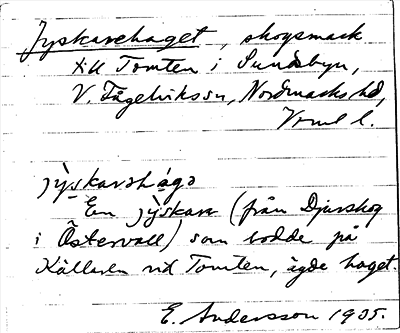 Jyskarehaget, skogsmark
till Tomten i Sundsbyn,
V. Fågelviks sn, Nordmarks hd,
Vrml l.
jỳskarəhagə
En jỳskare (från Djurskog
i Östervall) som bodde på
Källaren vid Tomten, ägde haget.
E. Andersson 1935.